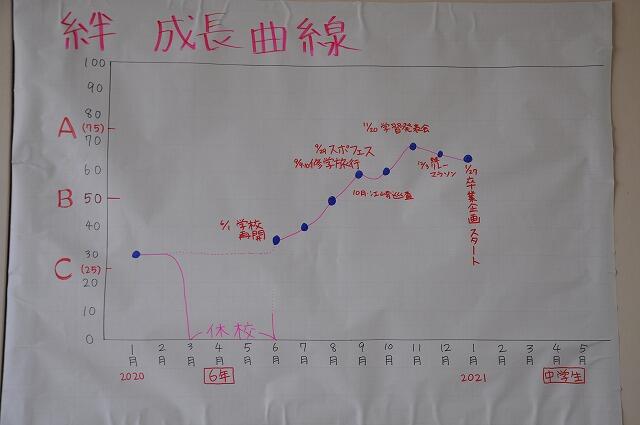 絆 成長曲線
100
90
80
A (75)
70
60
B 50
40
30
C (25)
20
10
0
6/1 学校
再開
9/29 スポフェス
修学旅行
11/20 学習発表会
リレー
マラソン
1/27 卒業企画スタート
休校
1月 2月 3月 4月 5月 6月 7月 8月 9月 10月 11月 12月 1月 2月 3月 4月 5月
2020 6年 2021 中学生